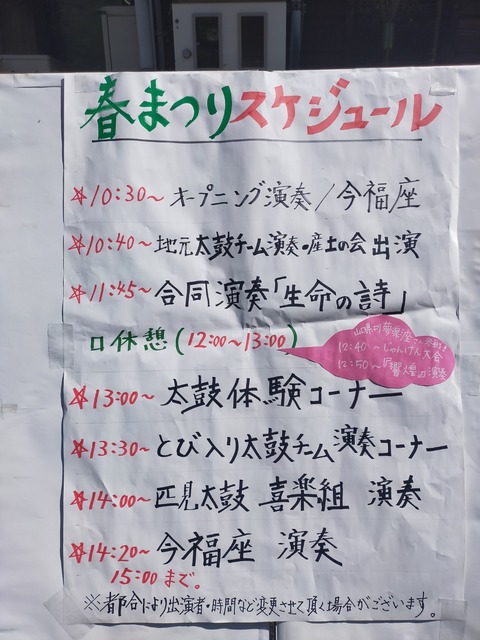 春まつりスケジュール
☆10:30～ オープニング演奏/今福座
☆10:40～ 地元太鼓チーム演奏・産土の会出演
☆11:45～ 合同演奏「生命の詩」
□休憩(12:00～13:00)
12:40～じゃんけん大会
12:50～ 演奏
☆13:00～ 太鼓体験コーナー
☆13:30～ とび入り太鼓チーム演奏コーナー
☆14:00～ 匹見太鼓 喜楽組 演奏
☆14:20～ 今福座 演奏
15:00まで。
※都合により出演者・時間など変更させて頂く場合がございます。